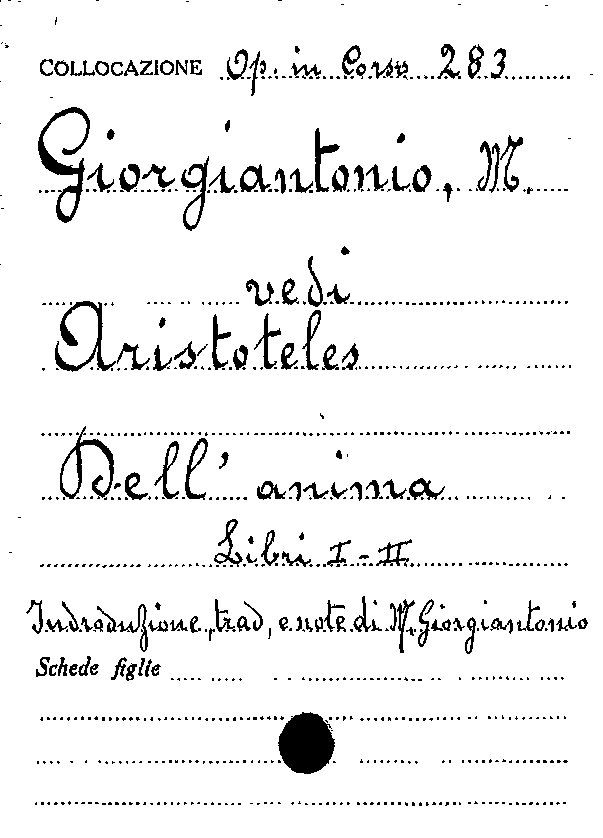 COLLOCAZIONE Op. in Corso 283
Giorgiantonio, M.
vedi
Aristoteles
Dell' anima
Libri I - II
Indroduzione, trad, e note di M. Giorgiantonio
Schede figlie